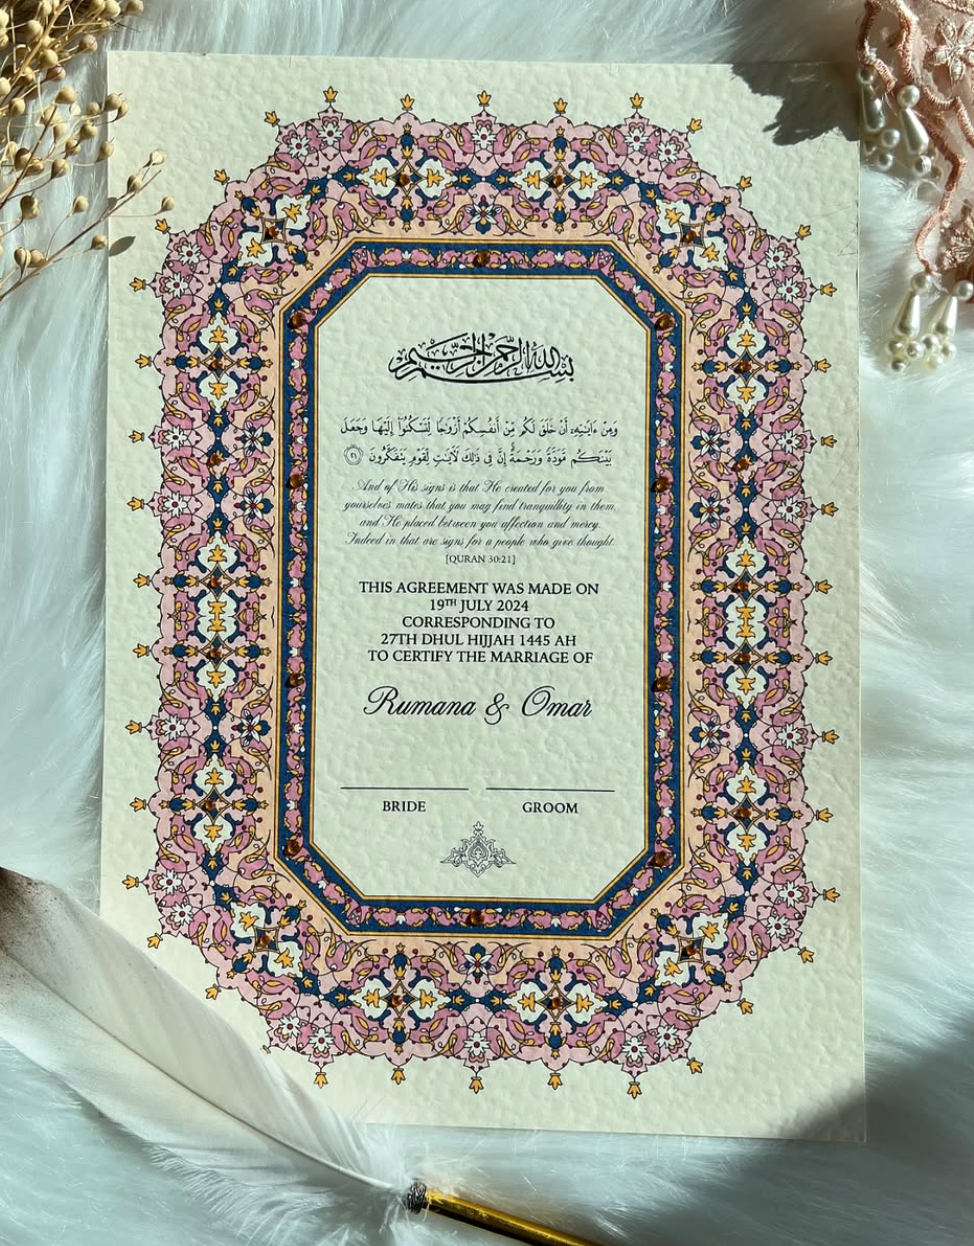 بسم الله الرحمن الرحيم
وَمِنْ ءَايَٰتِهِۦٓ أَنْ خَلَقَ لَكُم مِّنْ أَنفُسِكُمْ أَزْوَٰجًا لِّتَسْكُنُوٓا۟ إِلَيْهَا وَجَعَلَ
بَيْنَكُم مَّوَدَّةً وَرَحْمَةً إِنَّ فِى ذَٰلِكَ لَءَايَٰتٍ لِّقَوْمٍ يَتَفَكَّرُونَ ٢١
And of His signs is that He created for you from
yourselves mates that you may find tranquility in them,
and He placed between you affection and mercy.
Indeed in that are signs for a people who give thought.
[QURAN 30:21]
THIS AGREEMENT WAS MADE ON
19TH JULY 2024
CORRESPONDING TO
27TH DHUL HIJJAH 1445 AH
TO CERTIFY THE MARRIAGE OF
Rumana & Omar
BRIDE GROOM